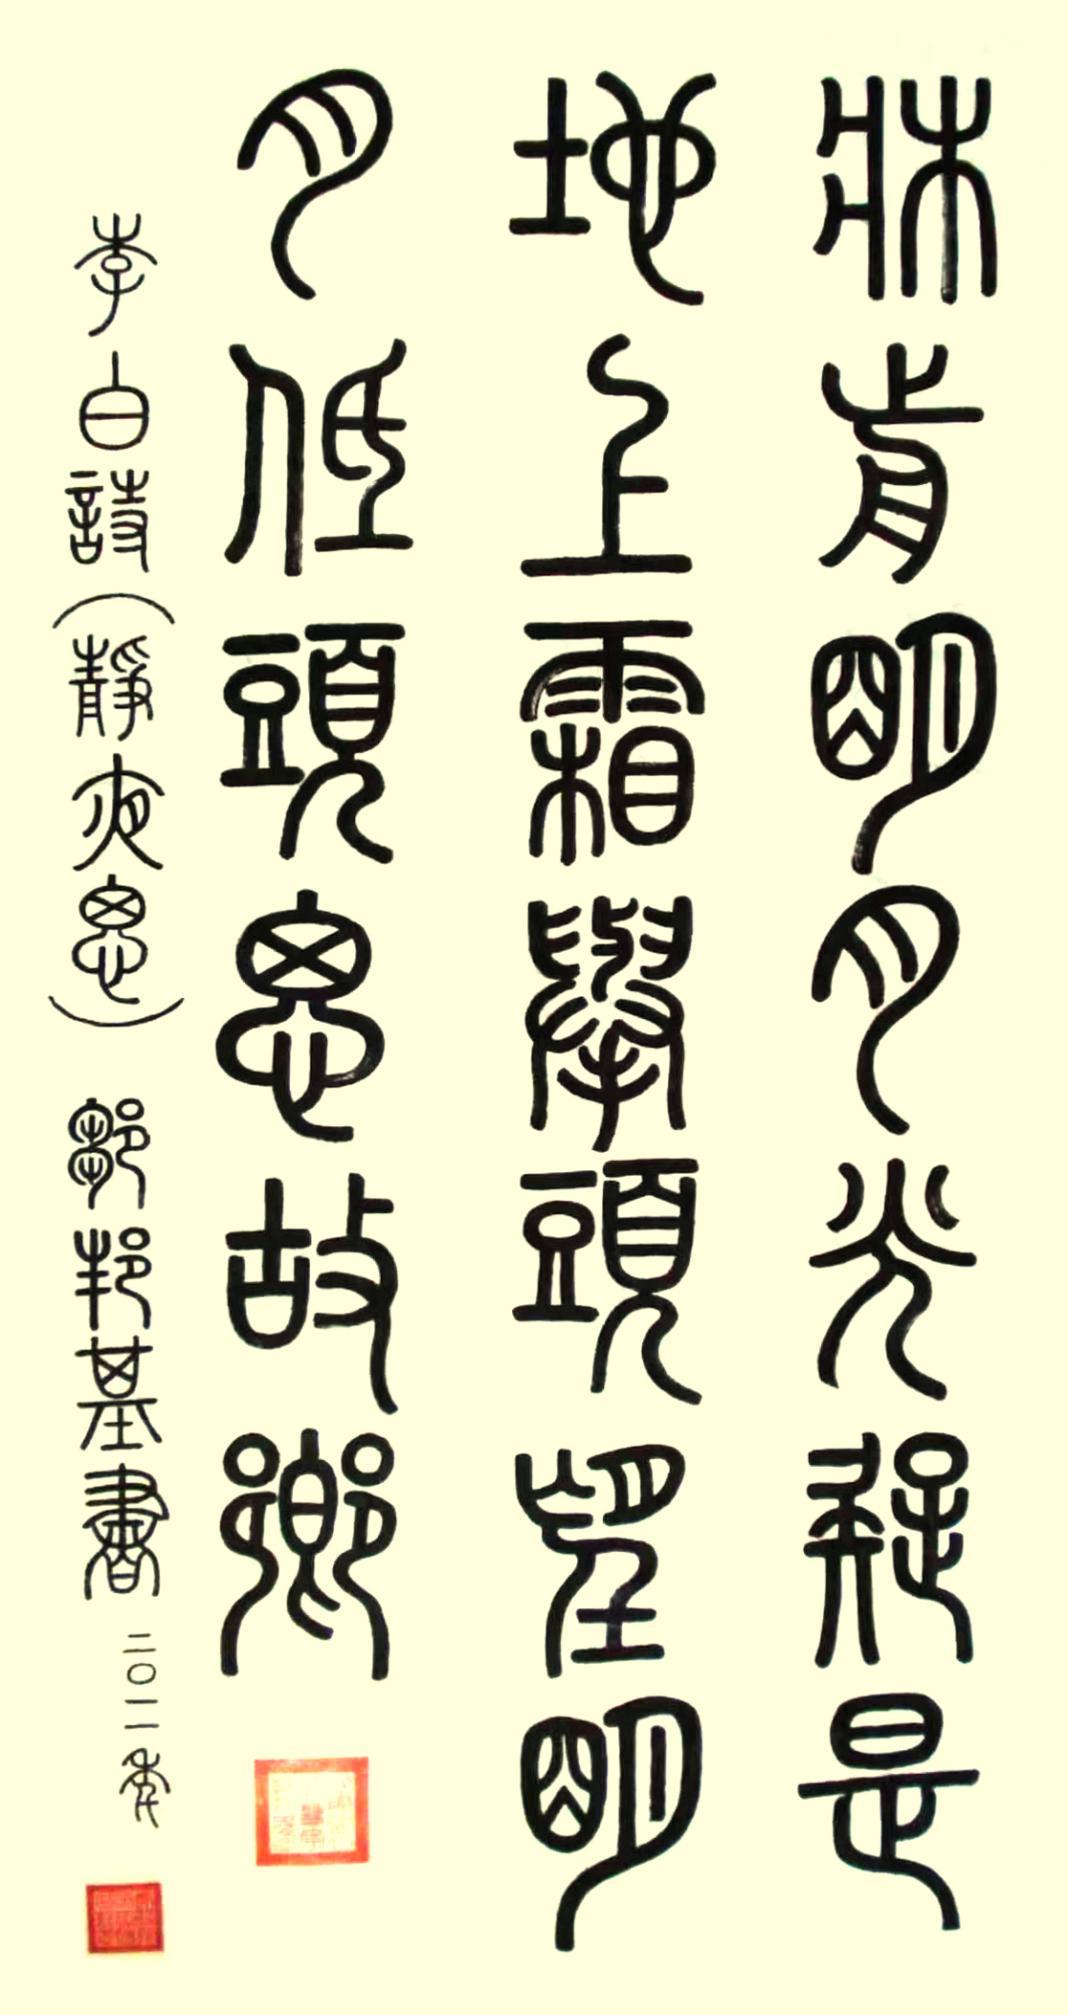 牀前明月光疑是
地上霜舉頭望明
月低頭思故鄉
李白詩（靜夜思） 鄒邦基書 二〇一一年